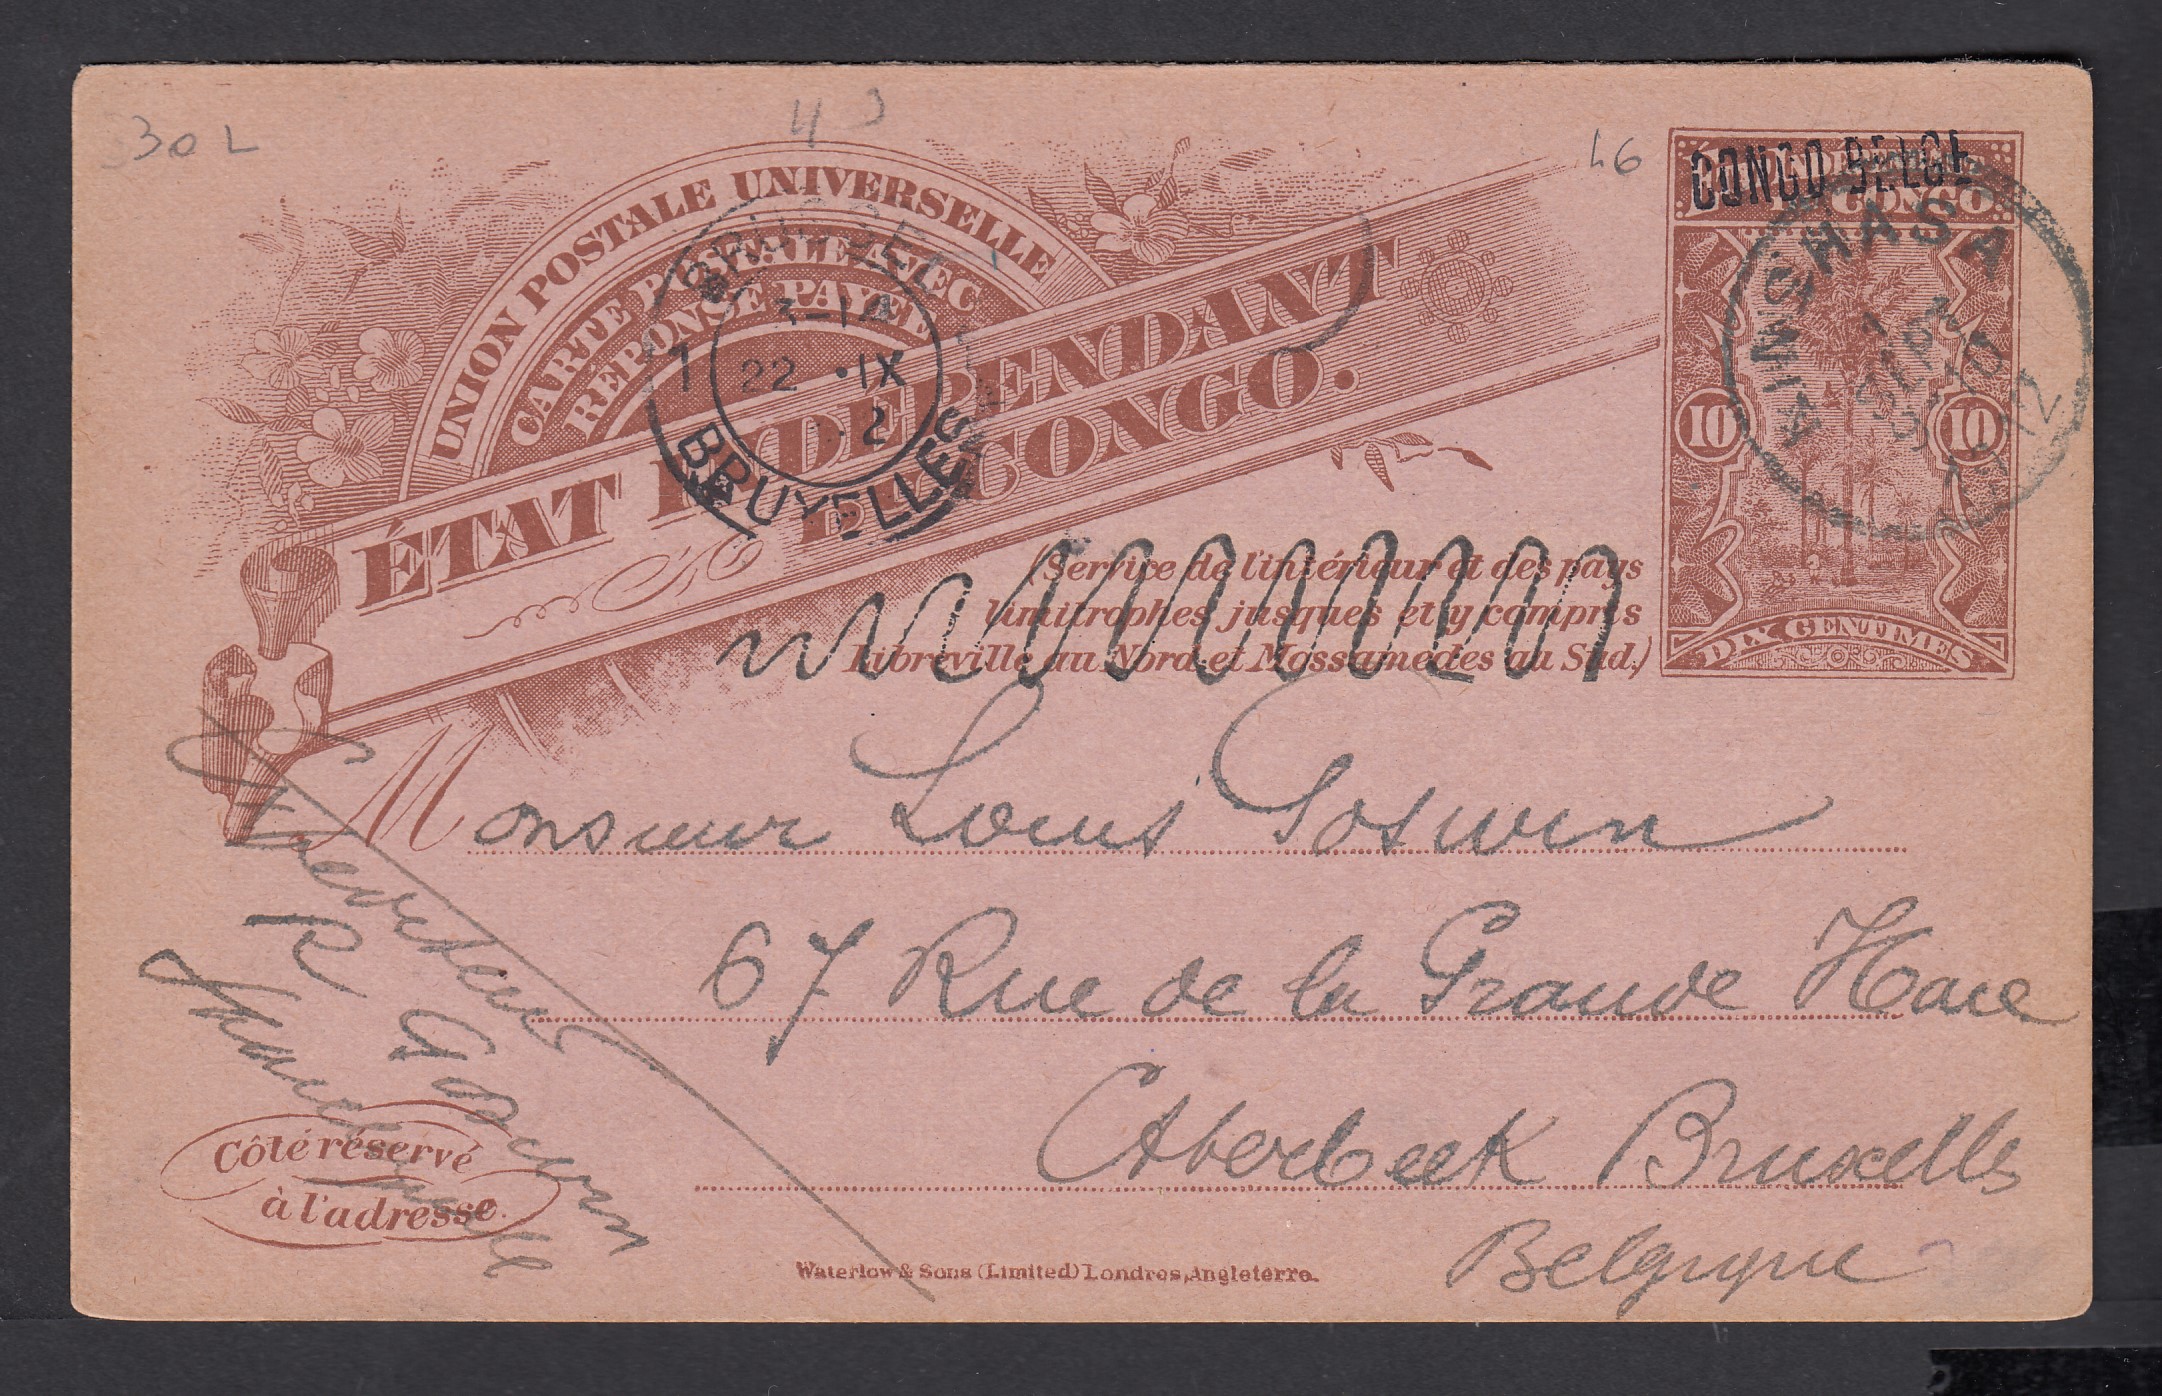 30 L
43
46
UNION POSTALE UNIVERSELLE
CARTE POSTALE AVEC
RÉPONSE PAYÉE
ÉTAT INDÉPENDANT
DU CONGO.
CONGO BELGE
CONGO
10 10
DIX CENTIMES
KINSHASA
1
SEPT
12
BRUSSEL
3-14
1 22 ·IX
. 2
BRUXELLES
(Service de l'intérieur et des pays
limitrophes jusques et y compris
Libreville au Nord et Mossamedes au Sud.)
Monsieur Louis Goswin
67 Rue de la Grande Haie
Etterbeek Bruxelles
Belgique
R Goswin
Côté réservé
à l'adresse.
Waterlow & Sons (Limited) Londres, Angleterre.